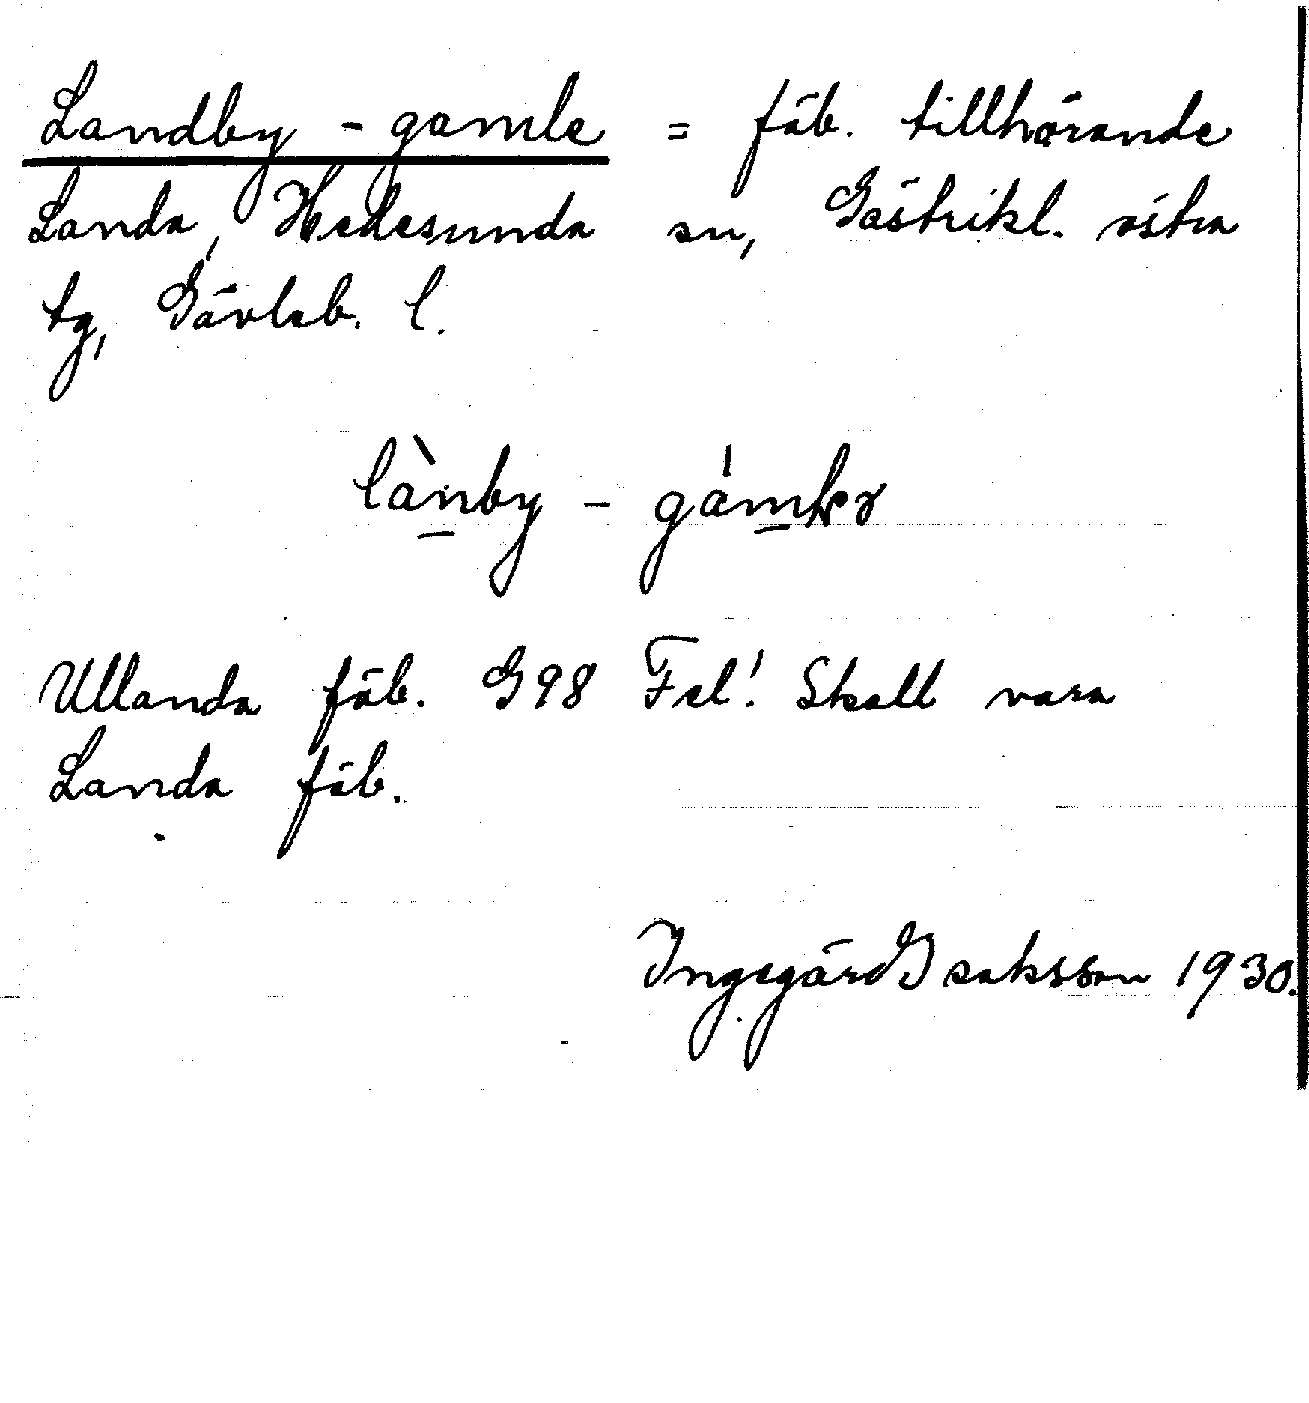 Landby - gamle = fäb. tillhörande
Landa, Hedesunda sn, Gästrikl. östra
tg, Gävleb. l.
lànby -
Ullanda fäb. G98 Fel! Skall vara
Landa fäb.
Ingegärd Isaksson 1930.